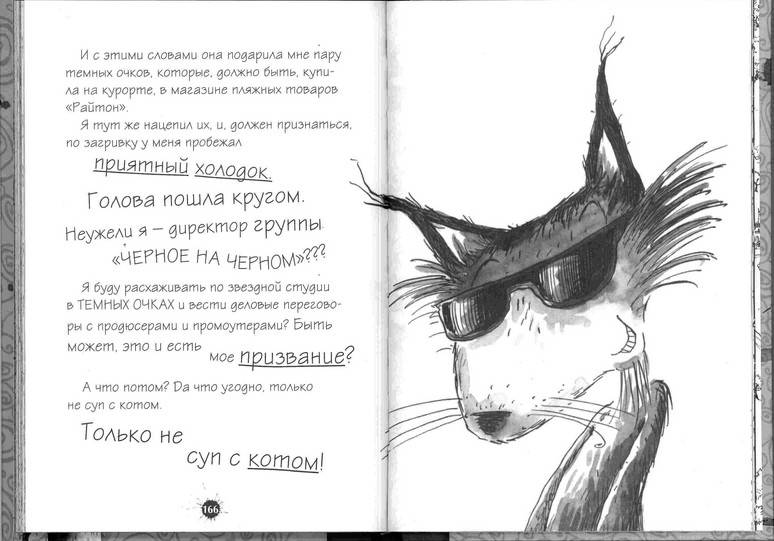 И с этими словами она подарила мне пару
темных очков, которые, должно быть, купи-
ла на курорте, в магазине пляжных товаров
«Райтон».
Я тут же нацепил их, и, должен признаться,
по загривку у меня пробежал
приятный холодок.
Голова пошла кругом.
Неужели я – директор группы
«ЧЕРНОЕ НА ЧЕРНОМ»???
Я буду расхаживать по звездной студии
в ТЕМНЫХ ОЧКАХ и вести деловые перегово-
ры с продюсерами и промоутерами? Быть
может, это и есть мое призвание?
А что потом? Да что угодно, только
не суп с котом.
Только не
суп с котом!
166